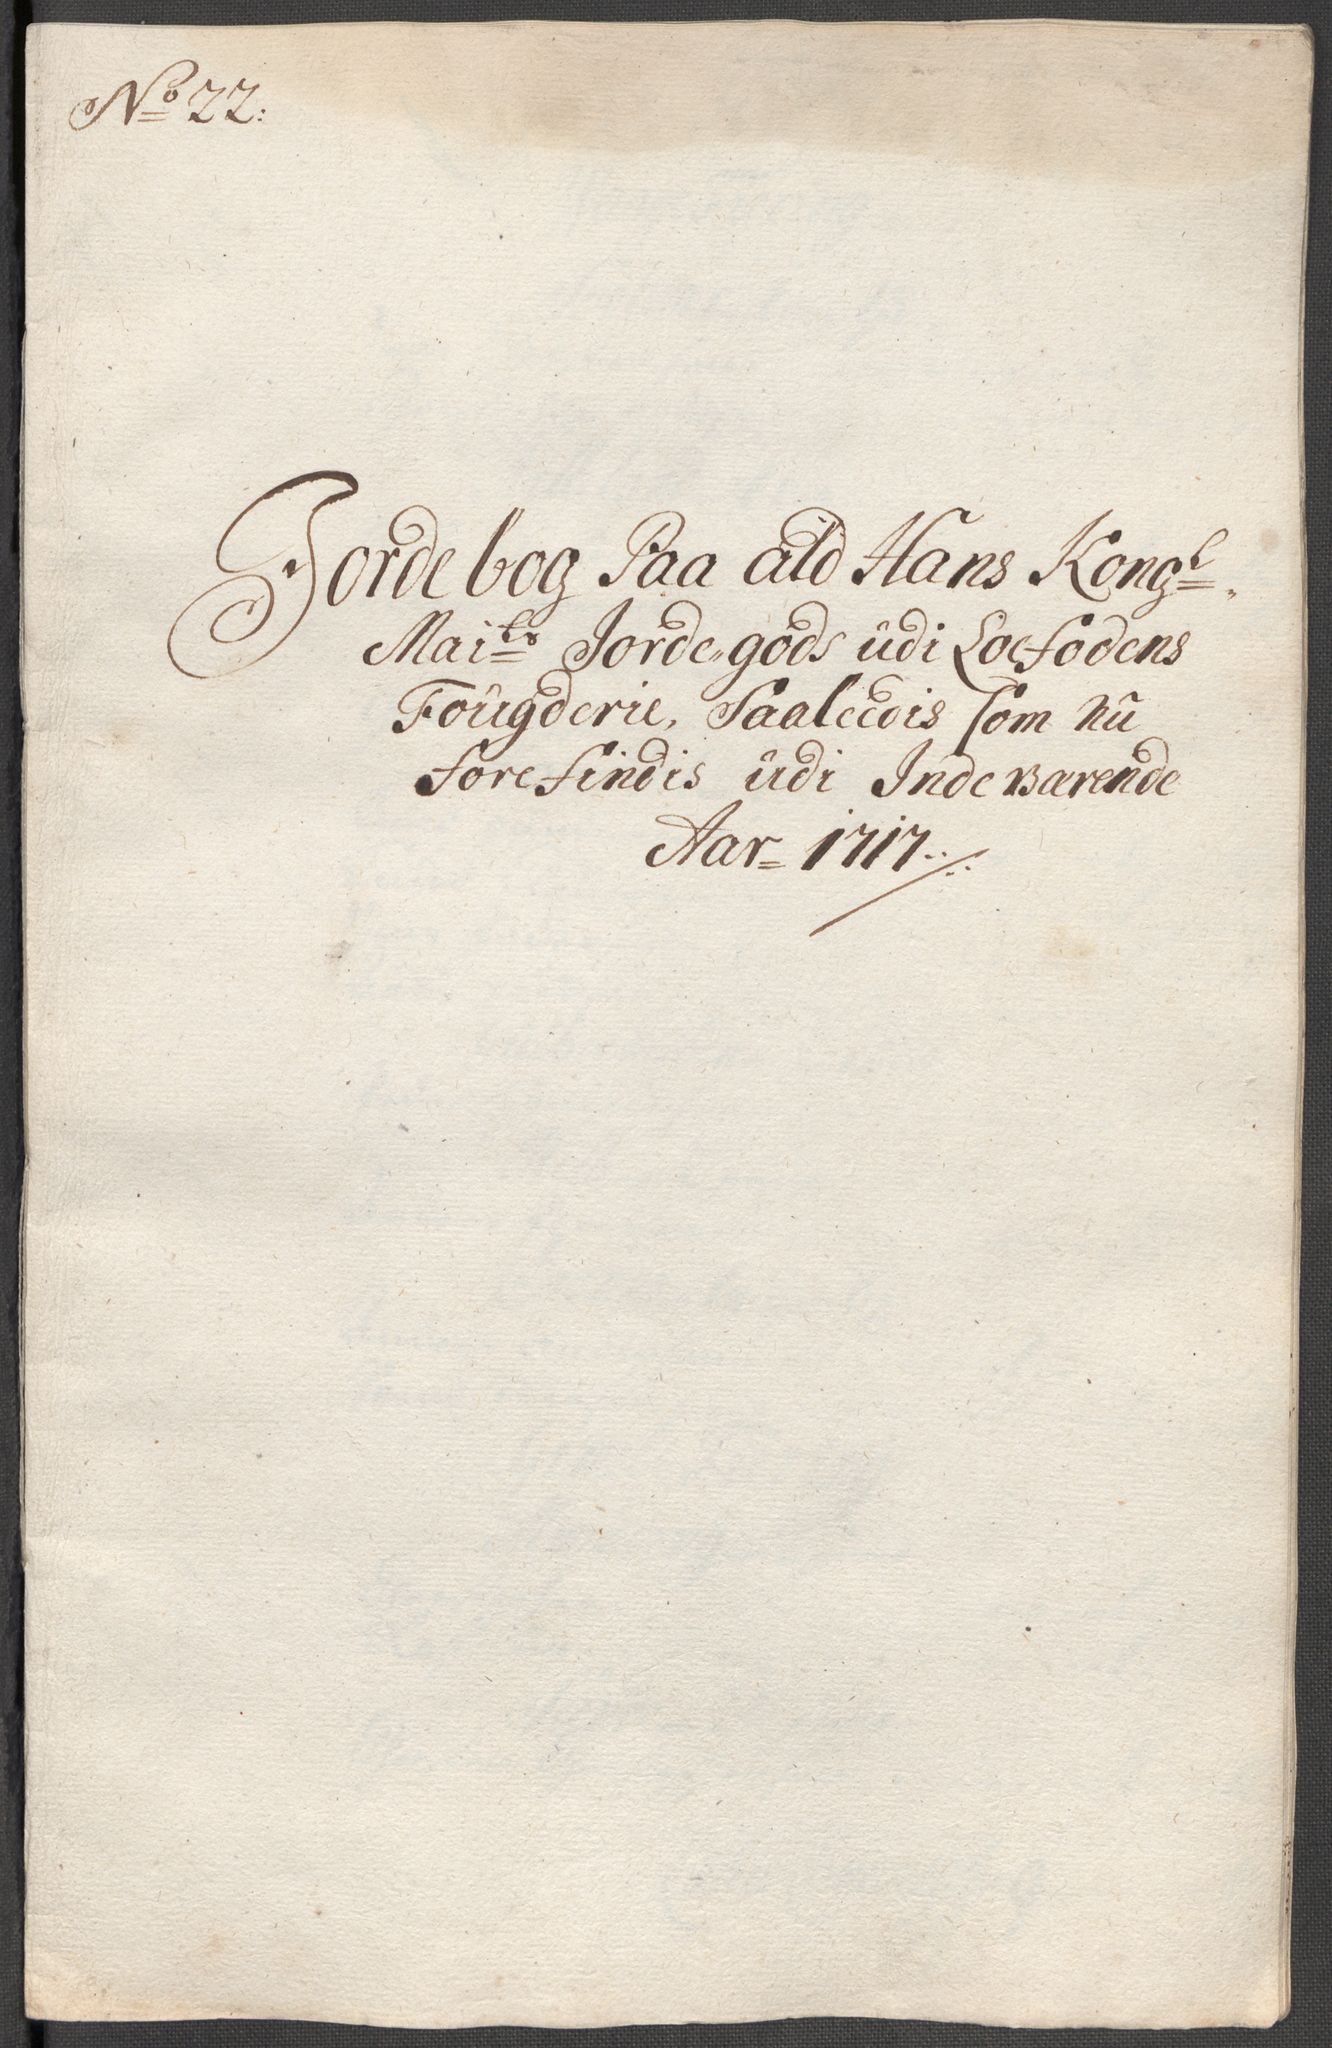 No 22:
Jordebog Paa ald Hans Kongl.
Maits Jorde,gods udi Loefodens
Fougderie, Saaleedis som nu
forefindis udi Indeværende
Aar 1717.